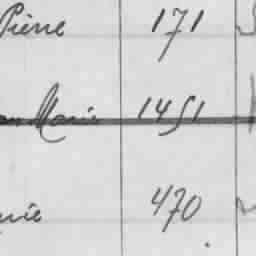 Pierre 171
Marie 1451
470